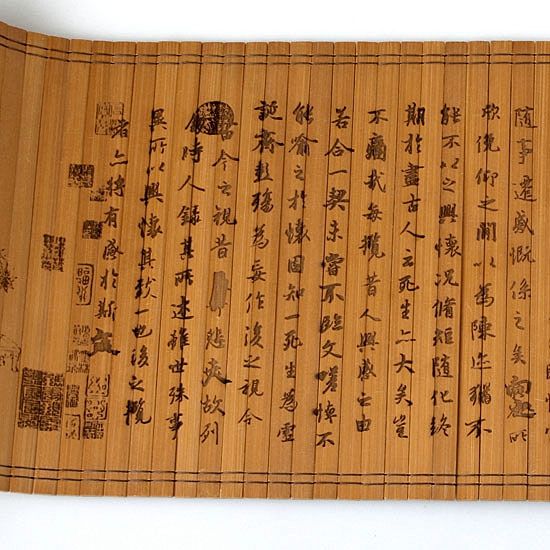 隨事遷感慨係之矣向之所
欣俛仰之閒以為陳迹猶不
能不以之興懷況脩短隨化終
期於盡古人云死生亦大矣豈
不痛哉每攬昔人興感之由
若合一契未嘗不臨文嗟悼不
能喻之於懷固知一死生為虛
誕齊彭殤為妄作後之視今
今之視昔悲夫故列
時人錄其所述雖世殊事
異所以興懷其致一也後之攬
者亦將有感於斯文